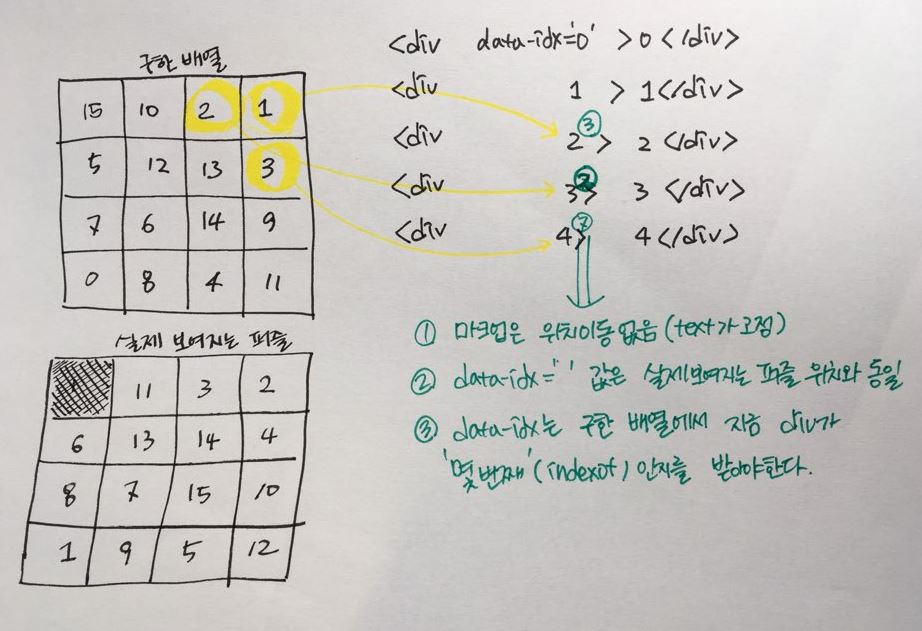 구한 배열
15 10 2 1
5 12 13 3
7 6 14 9
0 8 4 11
실제 보여지는 퍼즐
11 3 2
6 13 14 4
8 7 15 10
1 9 5 12
<div data-idx='0' >0</div>
<div 1 > 1</div>
③
<div 2 > 2 </div>
②
<div 3> 3 </div>
⑦
<div 4> 4</div>
① 마크업은 위치이동없음 (text가 고정)
② data-idx=' ' 값은 실제보여지는 퍼즐 위치와 동일
③ data-idx는 구한 배열에서 지금 div가
'몇번째' (indexof) 인지를 받아야한다.